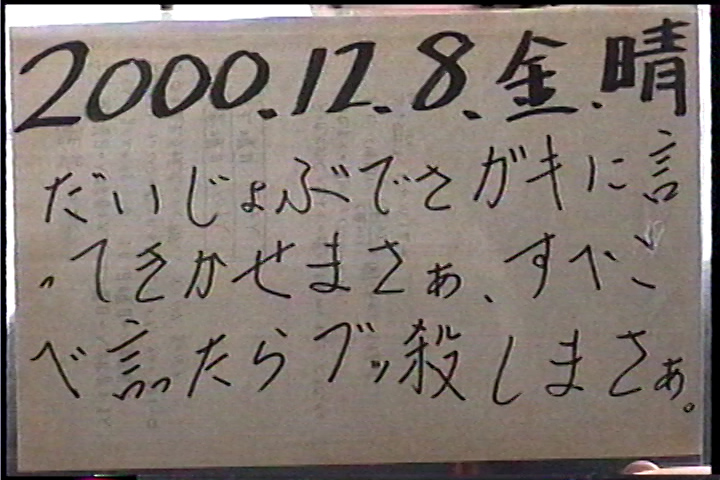 2000.12.8.金.晴
だいじょぶでさガキに言
ってきかせまさぁ、すべこ
べ言ったらブッ殺しまさぁ。